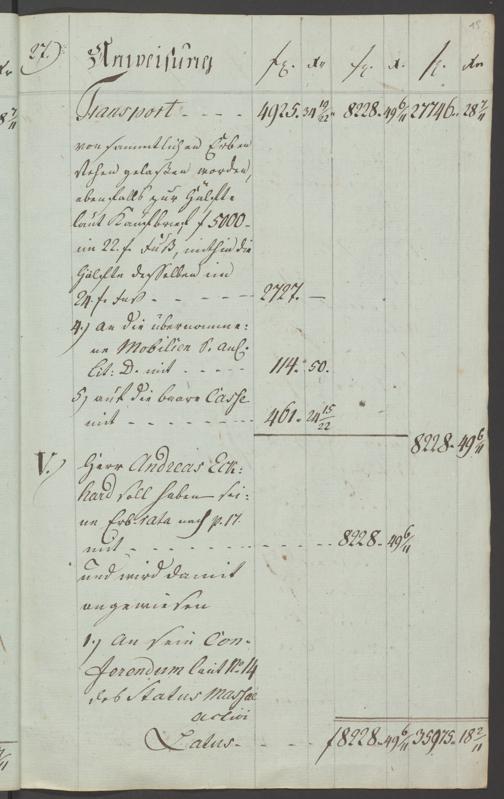 27.) Anweisung f. Xr f. Xr f. Xr
Transport - - - - 4925. 34 19/22 8228. 49 6/11 27746. 28 7/11
von sammtlichen Erben
stehen gelaßen worden,
ebenfalls zur Hälfte
laut Kaufbrief f 5000.
im 22. f. Fuß, mithin die
Hälfte desselben im
24. f. Fuß - - - - - 2727. —
4.) An die übernomme:
ne Mobilien S. 
Lit: D. mit - - - - - 114. 50.
5.) auf die baare Casse
mit - - - - - - - 461. 24 15/22
8228. 49 6/11
V.) Herr Andreas Eck:
hard soll haben sei:
ne Erbs-rata nach p. 17.
mit - - - - - - - - - - 8228. 49 6/11
und wird damit
angewiesen
1.) An sein Con-
ferendum laut No. 14
des Status Massae
activi
Latus - - - - - f 8228. 49 6/11 35975. 18 2/11